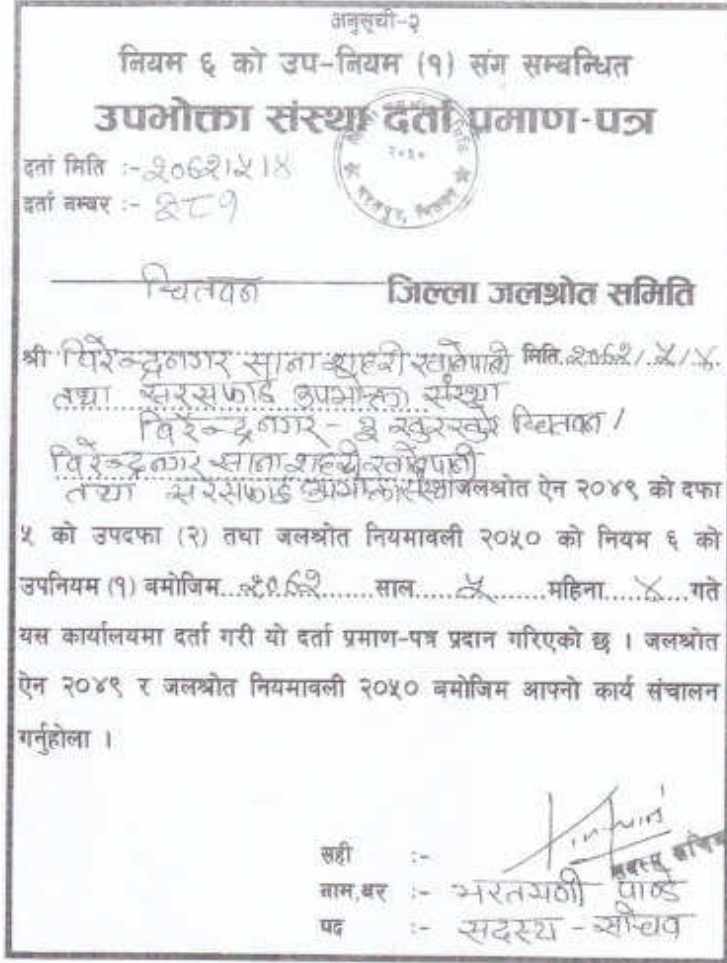 अनुसूची-२
नियम ६ को उप-नियम (१) संग सम्बन्धित
उपभोक्ता संस्था दर्ता प्रमाण-पत्र
२०५०
भरतपुर, चितवन
दर्ता मिति :- २०६२।५।४
दर्ता नम्बर :- २८१
चितवन जिल्ला जलश्रोत समिति
श्री विरेन्द्रनगर साना शहरी खानेपानी मिति २०६२/५/४
तथा सरसफाई उपभोक्ता संस्था
विरेन्द्रनगर - २ खुरखुरे चितवन /
विरेन्द्रनगर साना शहरी खानेपानी
तथा सरसफाई उपभोक्ता संस्था जलश्रोत ऐन २०४९ को दफा
५ को उपदफा (२) तथा जलश्रोत नियमावली २०५० को नियम ६ को
उपनियम (१) बमोजिम...२०६२.......साल.....५.......महिना.....४...गते
यस कार्यालयमा दर्ता गरी यो दर्ता प्रमाण-पत्र प्रदान गरिएको छ । जलश्रोत
ऐन २०४९ र जलश्रोत नियमावली २०५० बमोजिम आफ्नो कार्य संचालन
गर्नुहोला ।
सही :-
सदस्य सचिव
नाम,थर :- भरतमणी पाण्डे
पद :- सदस्य - सचिव